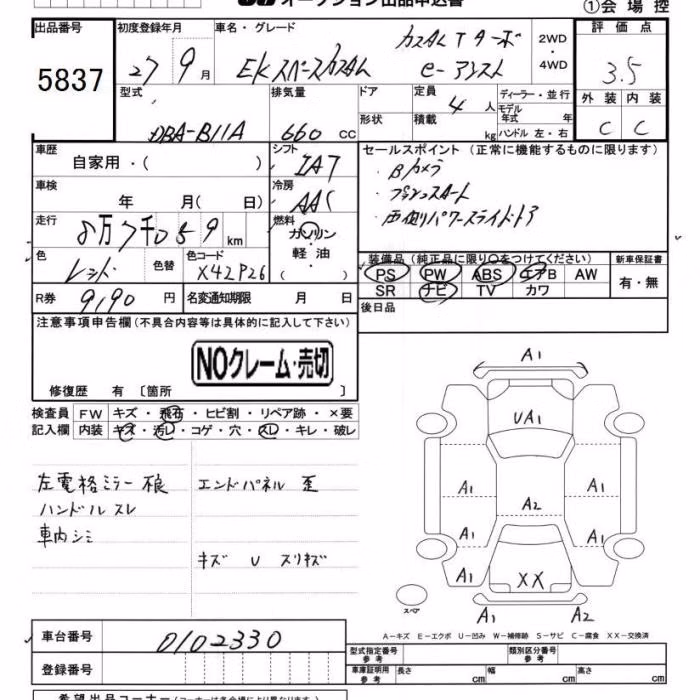 オークション出品申込書
①会場控
出品番号 5837
初度登録年月 27 9月
車名・グレード カスタムTターボ
EKスペースカスタム e-アシスト
2WD・4WD
評価点 3.5
外装 内装
C C
型式 DBA-B11A
排気量 660 cc
ドア
形状
定員 4 人
積載 kg
ディーラー・並行
モデル年式 年
ハンドル 左・右
車歴 自家用・( )
シフト IAT
セールスポイント (正常に機能するものに限ります)
・Bカメラ
・プッシュスタート
・両側パワースライドドア
車検 年 月( 日)
冷房 AAC
走行 8万7千059 km
燃料 ガソリン・軽油・( )
色 レッド 色替
色コード X42P26
装備品 (純正品に限り○をつけてください)
PS PW ABS エアB AW
SR ナビ TV カワ
新車保証書 有・無
R券 9190 円
名変通知期限 月 日
後日品
注意事項申告欄 (不具合内容等は具体的に記入して下さい)
NOクレーム・売切
修復歴 有 〔箇所 〕
検査員記入欄
FW キズ・飛石・ヒビ割・リペア跡・×要
内装 キズ・汚レ・コゲ・穴・スレ・キレ・破レ
左電格ミラー 不良
ハンドルスレ
車内シミ
エンドパネル 歪
キズ U スリキズ
A1
UA1
A1 A1
A2
A1 A1
A1 XX A1
A1 A2
スペア
A-キズ E-エクボ U-凹み W-補修跡 S-サビ C-腐食 XX-交換済
車台番号 0102330
登録番号
型式指定番号 参考
類別区分番号 参考
車庫証明用 参考 長さ cm 幅 cm 高さ cm
希望出品コーナー (コーナーは各会場により異なります)